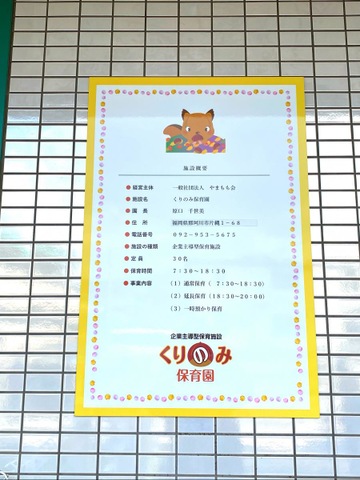 施設概要
●経営主体 一般社団法人 やまもも会
●施設名 くりのみ保育園
●園長 原口 千世美
●住所 福岡県那珂川市片縄1-68
●電話番号 092-953-5675
●施設の種類 企業主導型保育施設
●定員 30名
●保育時間 7:30~18:30
●事業内容 (1)通常保育( 7:30~18:30)
(2)延長保育(18:30~20:00)
(3)一時預かり保育
企業主導型保育施設
くりのみ
保育園